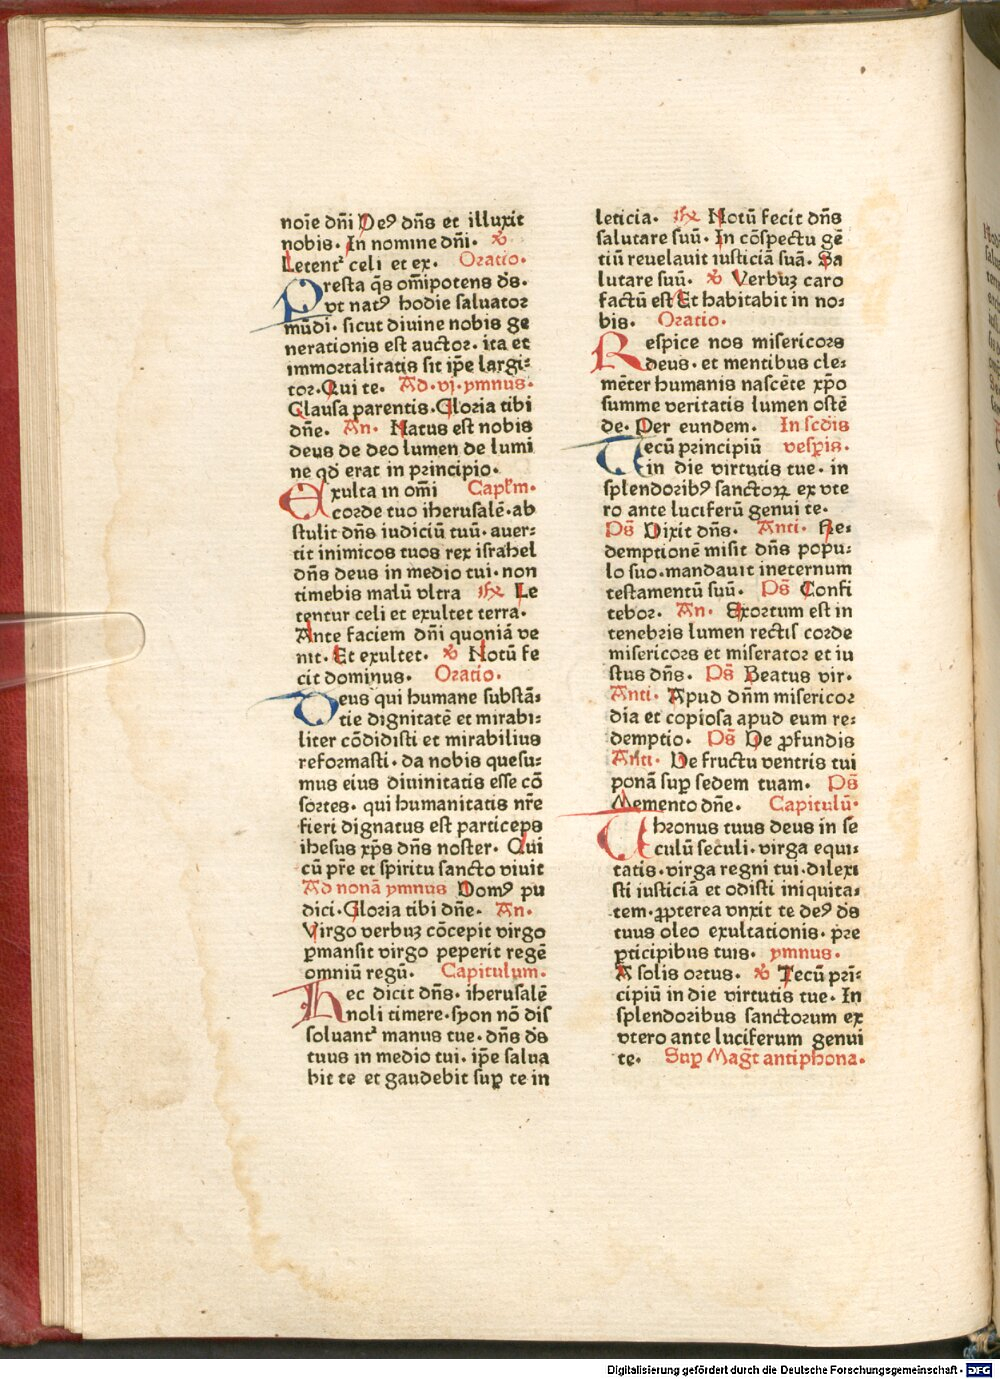 noīe dn̄i Deꝰ dn̄s et illuxit
nobis. In nomine dn̄i. ℣
Letentᷣ celi et ex. Oratio.
Presta q̄s om̄ipotens d̄s.
vt natꝰ hodie saluator
mūdi. sicut diuine nobis ge
nerationis est auctor. ita et
immortalitatis sit ip̄e largi⸗
tor. Qui te. Ad. vi. ymnus.
Clausa parentis. Gloria tibi
dn̄e. An. Natus est nobis
deus de deo lumen de lumi
ne qd̄ erat in principio.
Exulta in om̄i Cap̄lm.
corde tuo iherusalē. ab
stulit dn̄s iudiciū tuū. auer⸗
tit inimicos tuos rex israhel
dn̄s deus in medio tui. non
timebis malū vltra ℟ Le
tentur celi et exultet terra.
Ante faciem dn̄i quoniā ve
nit. Et exultet. ℣ Notū fe
cit dominus. Oratio.
Deus qui humane substā⸗
tie dignitatē et mirabi⸗
liter cōdidisti et mirabilius
reformasti. da nobis quesu⸗
mus eius diuinitatis esse cō
sortes. qui humanitatis nr̄e
fieri dignatus est particeps
ihesus xp̄s dn̄s noster. Qui
cū pr̄e et spiritu sancto viuit
Ad nonā ymnus Domꝰ pu
dici. Gloria tibi dn̄e. An.
Virgo verbuꝫ cōcepit virgo
ꝑmansit virgo peperit regē
omniū regū. Capitulum.
Hec dicit dn̄s. iherusalē
noli timere. syon nō dis
soluantᷣ manus tue. dn̄s d̄s
tuus in medio tui. ip̄e salua
bit te et gaudebit suꝑ te in
leticia. ℟ Notū fecit dn̄s
salutare suū. In cōspectu gē
tiū reuelauit iusticiā suā. Sa
lutare suū. ℣ Verbuꝫ caro
factū est Et habitabit in no⸗
bis. Oratio.
Respice nos misericors
deus. et mentibus cle⸗
mēter humanis nascēte xp̄o
summe veritatis lumen ostē
de. Per eundem. In scd̄is
Tecū principiū vesꝑis.
in die virtutis tue. in
splendoribꝰ sanctoꝝ ex vte
ro ante luciferū genui te.
Ps̄ Dixit dn̄s. Anti. Re⸗
demptionē misit dn̄s popu⸗
lo suo. mandauit ineternum
testamentū suū. Ps̄ Confi
tebor. An. Exortum est in
tenebris lumen rectis corde
misericors et miserator et iu
stus dn̄s. Ps̄ Beatus vir.
Anti. Apud dn̄m misericor
dia et copiosa apud eum re⸗
demptio. Ps̄ De ꝓfundis
Anti. De fructu ventris tui
ponā suꝑ sedem tuam. Ps̄
Memento dn̄e. Capitulū.
Thronus tuus deus in se
culū seculi. virga equi⸗
tatis. virga regni tui. dilexi
sti iusticiā et odisti iniquita⸗
tem. ꝓpterea vnxit te deꝰ d̄s
tuus oleo exultationis. pre
ꝑticipibus tuis. ymnus.
A solis ortus. ℣ Tecū pri⸗
cipiū in die virtutis tue. In
splendoribus sanctorum ex
vtero ante luciferum genui
te. Suꝑ Maḡt antiphona.
Digitalisierung gefördert durch die Deutsche Forschungsgemeinschaft - DFG